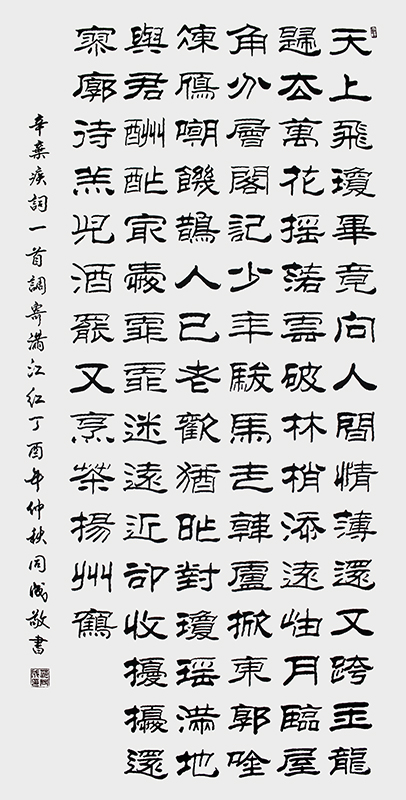 天上飛瓊畢竟向人間情薄還又跨玉龍
歸去萬花摇落雲破林梢添遠岫月臨屋
角分層閣記少年駿馬走韓盧掀東郭唫
凍鴈嘲饑鵲人已老歡猶昨對瓊瑶滿地
與君酬酢最愛霏霏迷遠近卻收擾擾還
寥廓待羔兒酒罷又烹茶揚州鶴
辛棄疾詞一首調寄滿江紅丁酉年仲秋同敬書